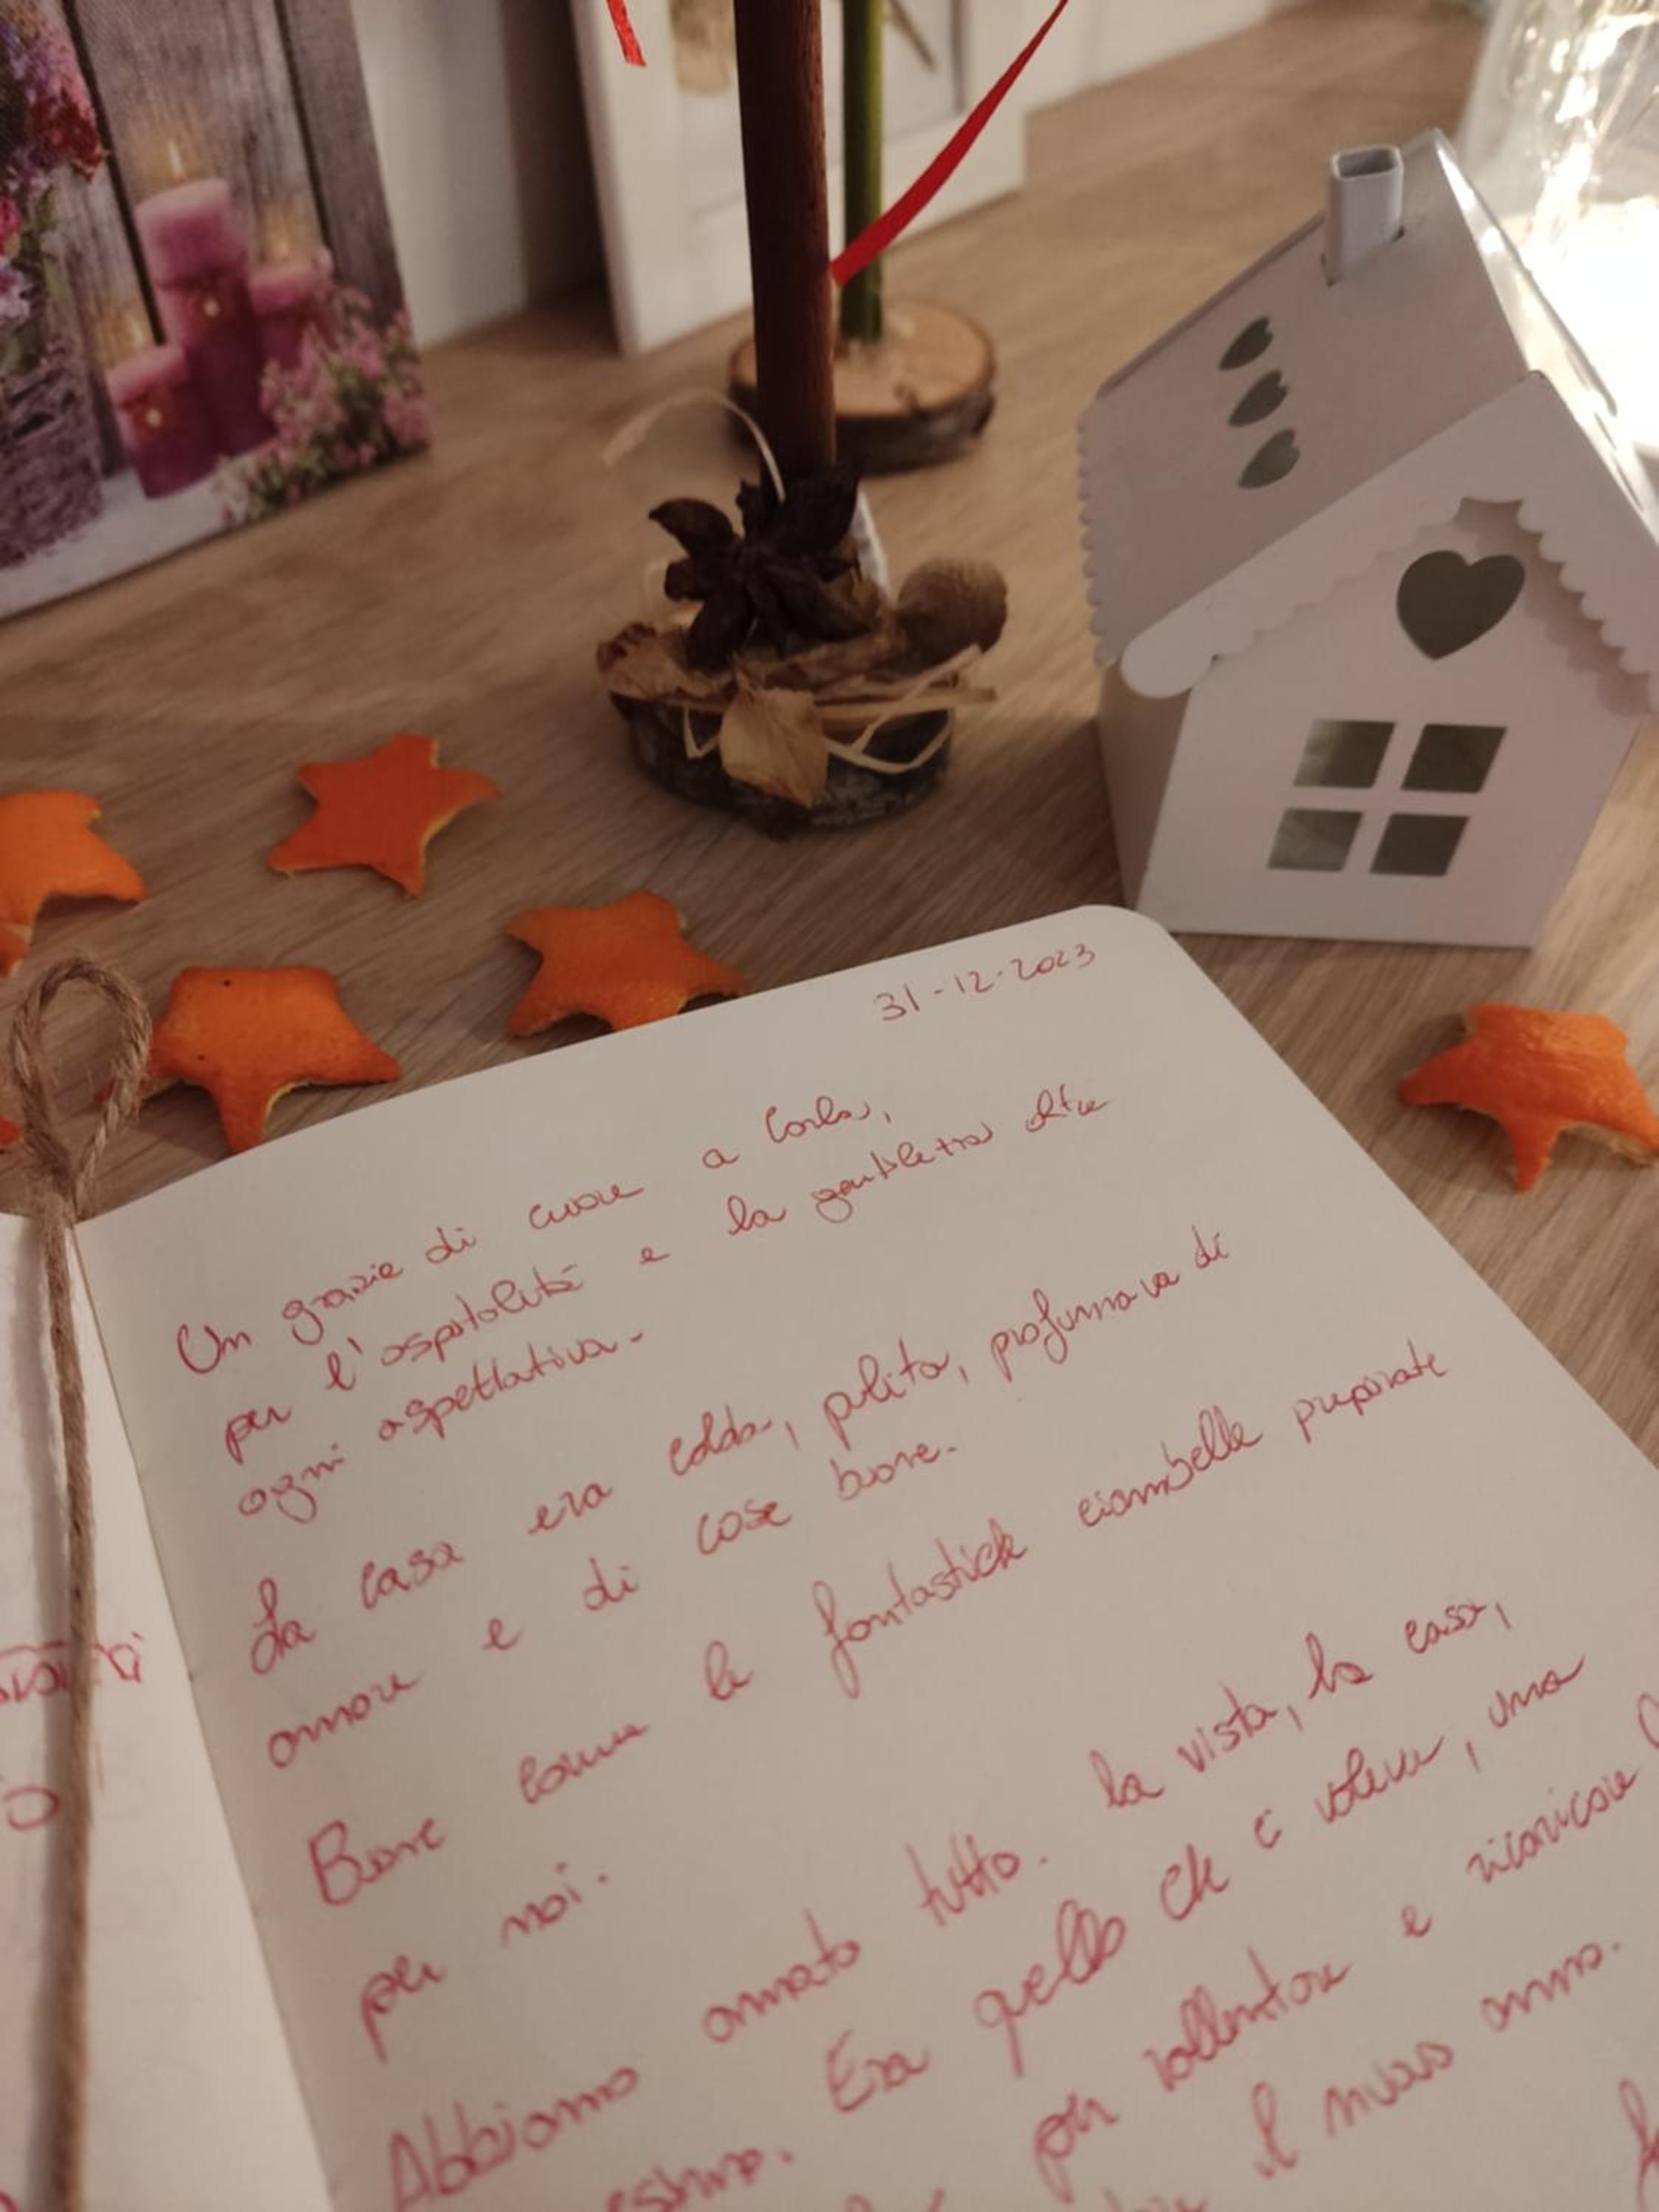 31-12-2023
Un grazie di cuore a Carla,
per l'ospitalità e la gentilezza oltre
ogni aspettativa.
La casa era calda, pulita, profumava di
amore e di cose buone.
Buone come le fantastiche ciambelle preparate
per noi.
Abbiamo amato tutto. La vista, la casa,
Era quello che ci voleva, una
per rallentare e ricaricare
il nuovo anno.